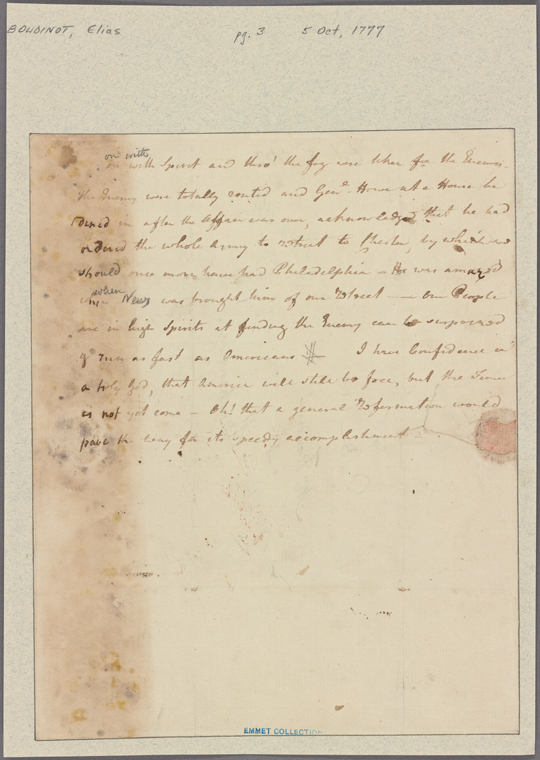 BOUDINOT, Elias pg. 3 5 Oct, 1777
on with
with Spirit and thro' the fog were taken for the Enemy.
the Enemy were totally routed and Genl. Howe at a House he
dined in after the Affair was over, acknowledged that he had
ordered the whole Army to retreat to Chester, by which we
should once more have had Philadelphia — He was amazed
when
News was brought him of our Retreat — our People
are in high Spirits at finding the Enemy can be surprized
& run as fast as Americans I have Confidence in
a holy God, that America will still be free, but the Time
is not yet come — Oh! that a general Reformation would
pave the way for its speedy accomplishment
EMMET COLLECTION